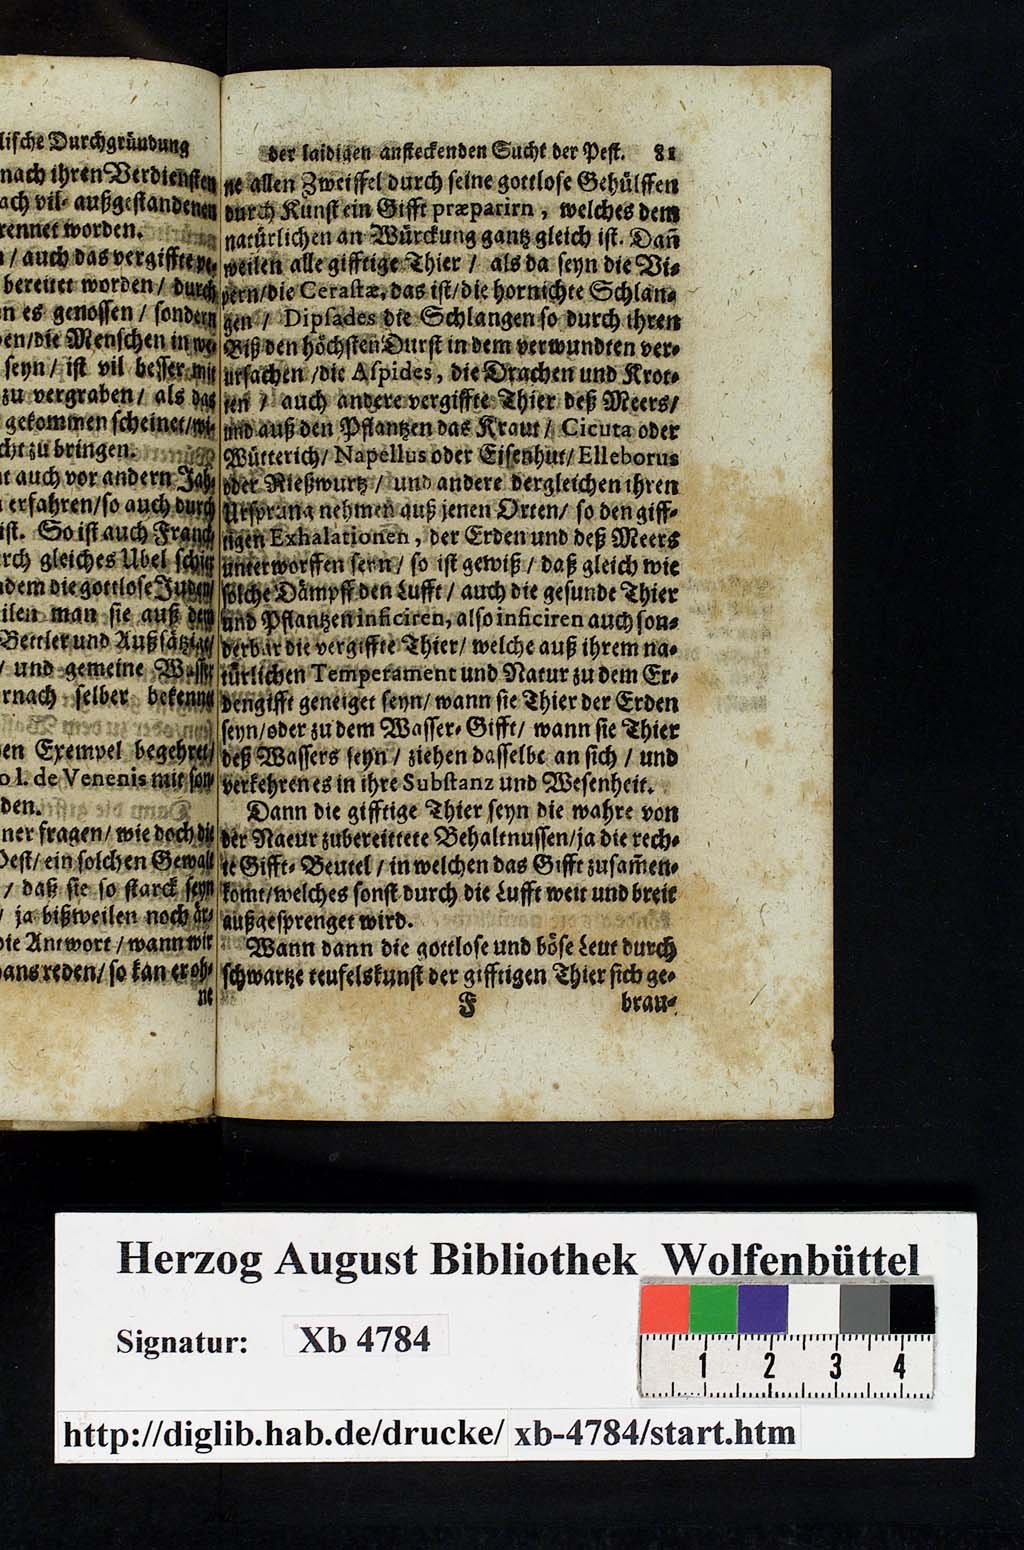 lische Durchgründung
nach ihren Verdiensten
ach vil- außgestandenen
rennet worden.
/ auch das vergiffte
bereitet worden / durch
n es genossen / sondern
en/die Menschen in
seyn / ist vil besser mit
zu vergraben / als das
gekommen scheinet/
cht zu bringen.
t auch vor andern Jah-
erfahren/so auch durch
ist. So ist auch Franck
rch gleiches Ubel schier
dem die gottlose Juden/
ilen man sie auß dem
Bettler und Außsätzige/
/ und gemeine Wasser
rnach selber bekennt
en Exempel begehret/
o l. de Venenis mit son-
den.
ner fragen / wie doch die
Pest / ein solchen Gewalt
/ daß sie so starck seyn
/ ja bißweilen noch är-
die Antwort / wann wir
ans reden / so kan er oh-
ne
der laidigen ansteckenden Sucht der Pest. 81
ne allen Zweiffel durch seine gottlose Gehülffen
durch Kunst ein Gifft præparirn, welches dem
natürlichen an Würckung gantz gleich ist. Dañ
weilen alle gifftige Thier / als da seyn die Vi-
pern/die Cerastæ, das ist/die hornichte Schlan-
gen / Dipsades die Schlangen so durch ihren
Biß den höchsten Durst in dem verwundten ver-
ursachen /die Aspides, die Drachen und Krot-
ten / auch andere vergiffte Thier deß Meers/
und auß den Pflantzen das Kraut / Cicuta oder
Wütterich/ Napellus oder Eisenhut/ Elleborus
oder Nießwurtz / und andere dergleichen ihren
Ursprung nehmen auß jenen Orten/ so den giff-
tigen Exhalationen, der Erden und deß Meers
unterworffen seyn / so ist gewiß / daß gleich wie
solche Dämpff den Lufft / auch die gesunde Thier
und Pflantzen inficiren, also inficiren auch son-
derbar die vergiffte Thier/ welche auß ihrem na-
türlichen Temperament und Natur zu dem Er-
dengifft geneiget seyn/ wann sie Thier der Erden
seyn/oder zu dem Wasser- Gifft / wann sie Thier
deß Wassers seyn / ziehen dasselbe an sich / und
verkehren es in ihre Substanz und Wesenheit.
Dann die gifftige Thier seyn die wahre von
der Naeur zubereittete Behaltnussen/ja die rech-
te Gifft- Beutel / in welchen das Gifft zusam̃en-
komt/welches sonst durch die Lufft weit und breit
außgesprenget wird.
Wann dann die gottlose und böse Leut durch
schwartze teufelskunst der gifftigen Thier sich ge-
F brau-
Herzog August Bibliothek Wolfenbüttel
Signatur: Xb 4784
1 2 3 4
http://diglib.hab.de/drucke/ xb-4784/start.htm